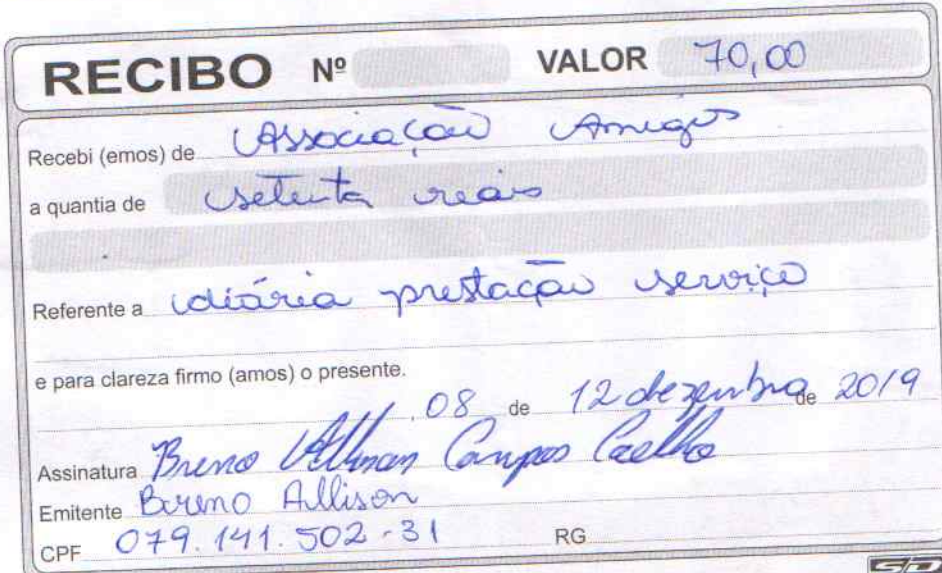 RECIBO Nº VALOR 70,00
Recebi (emos) de Associação Amigos
a quantia de setenta reais
Referente a diária prestação serviço
e para clareza firmo (amos) o presente.
, 08 de 12 dezembro de 2019
Assinatura Breno Allison Campos Coelho
Emitente Breno Allison
CPF 079.141.502-31 RG
SD